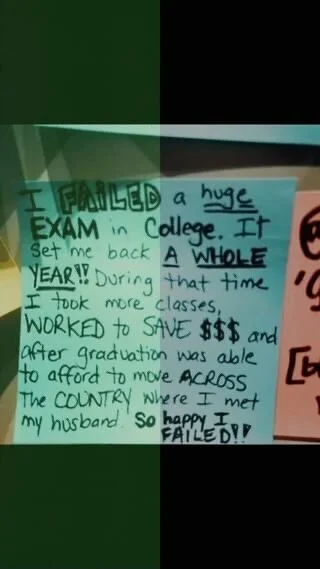 I FAILED a huge
EXAM in College. It
set me back A WHOLE
YEAR!! During that time
I took more classes,
WORKED to SAVE $$$ and
after graduation was able
to afford to move ACROSS
The COUNTRY where I met
my husband. So happy I
FAILED!!